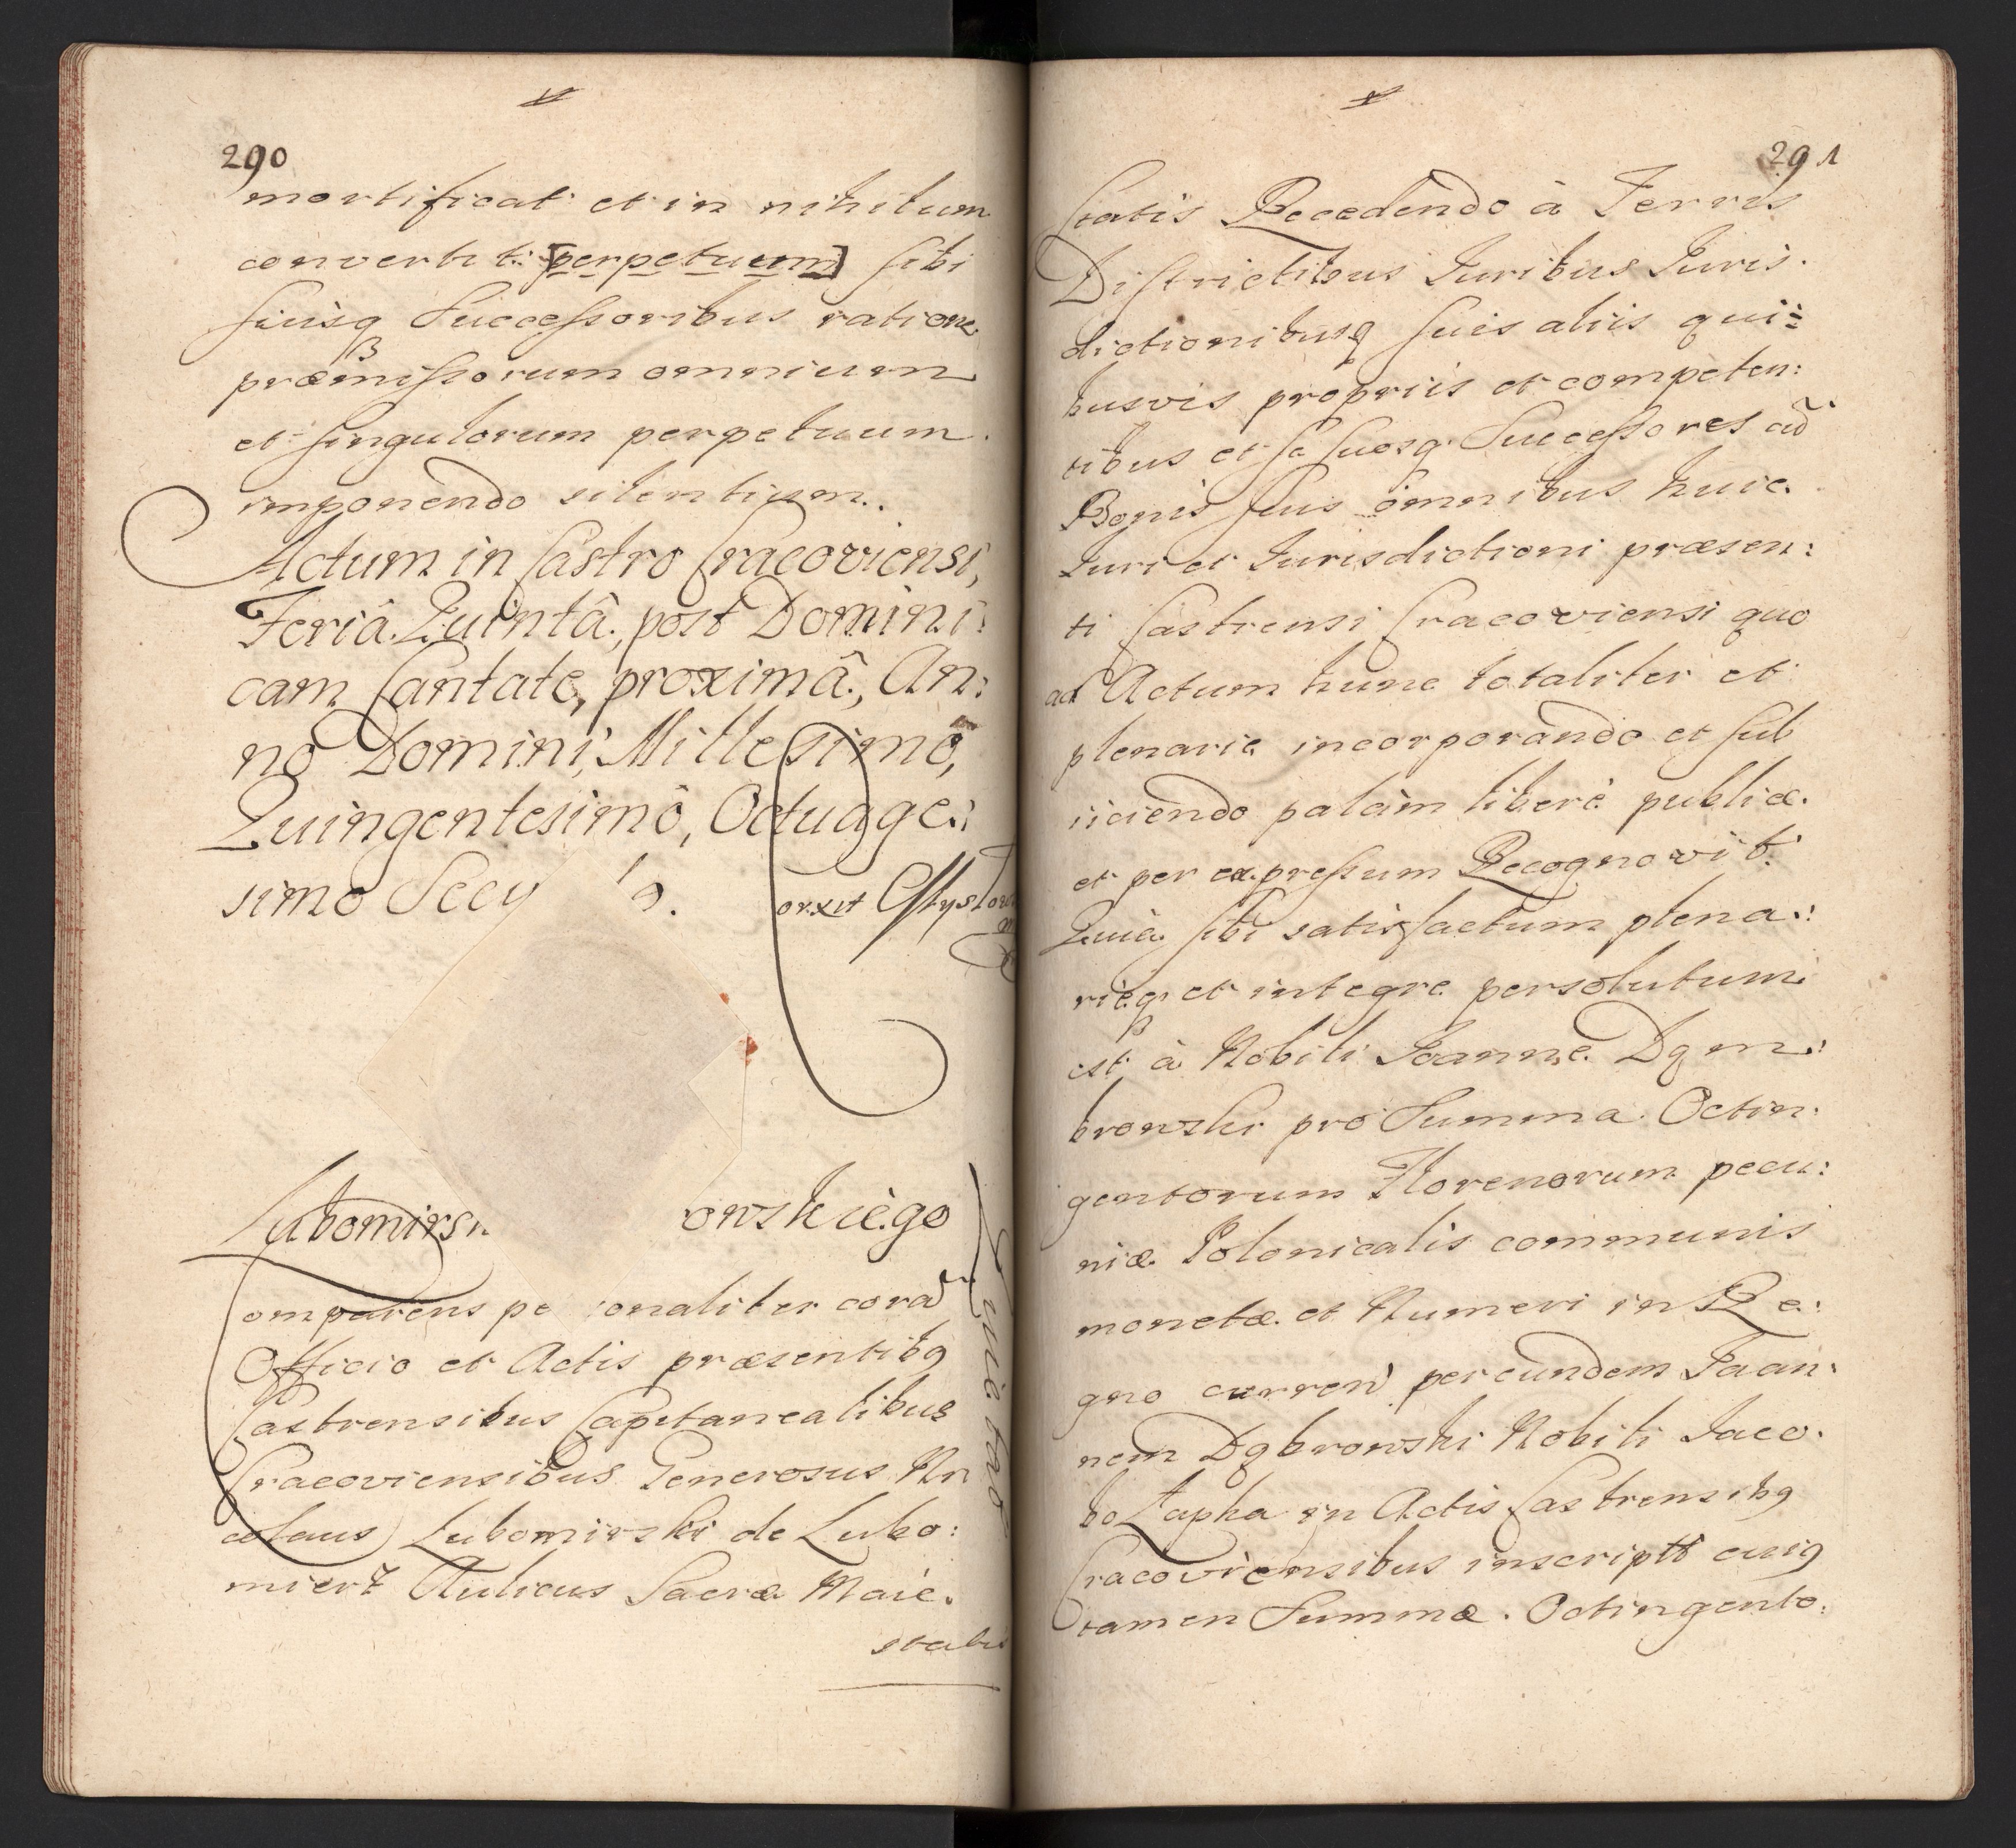 290
mortificat et in nihilum
convertit [perpetuum] sibi
suisq Successoribus ratione
præmissorum omnium
et singulorum perpetuum
imponendo silentium.
Actum in Castro Cracoviensi,
Feriâ Quintâ, post Domini:
cam Cantate, proximâ, An:
no Domini, Millesimô,
Quingentesimô, Octuage:
simo Secu
orxit
Lubomirs owskiègo
omparens pe onaliter corã
Officio et Actis præsentibq
Castrensibus Capitanealibus
Cracoviensibus Generosus Ni
colaus Lubomirski de Lubo:
mierz Aulicus Sacræ Maie.
statis
Quietat
291
statis Recedendo à Terris
Districtibus Iuribus Iuris.
dictionibusq suis aliis qui:
busvis propriis et competen:
tibus et se suosq Successores cũ
Bonis suis omnibus huic
Iuri et Iurisdictioni præsen:
ti Castrensi Cracoviensi quo
ad Actum hunc totaliter et
plenarie incorporando et sub
iiciendo palàm liberè publice
et per expressum Recognovit.
Quià sibi satisfactum plena:
rièq et integre persolutum
est à Nobili Joanne Dqm:
browski pro Summa Octin:
gentorum Florenorum pecu:
niæ Polonicalis communis
monetæ et Numeri in Re:
gno curren per eundem Joan:
nem Dqbrowski Nobili Jaco.
bo Łapka in Actis Castrensibq
Cracoviensibus inscriptt cuiq
tamen Summæ. Octingento: